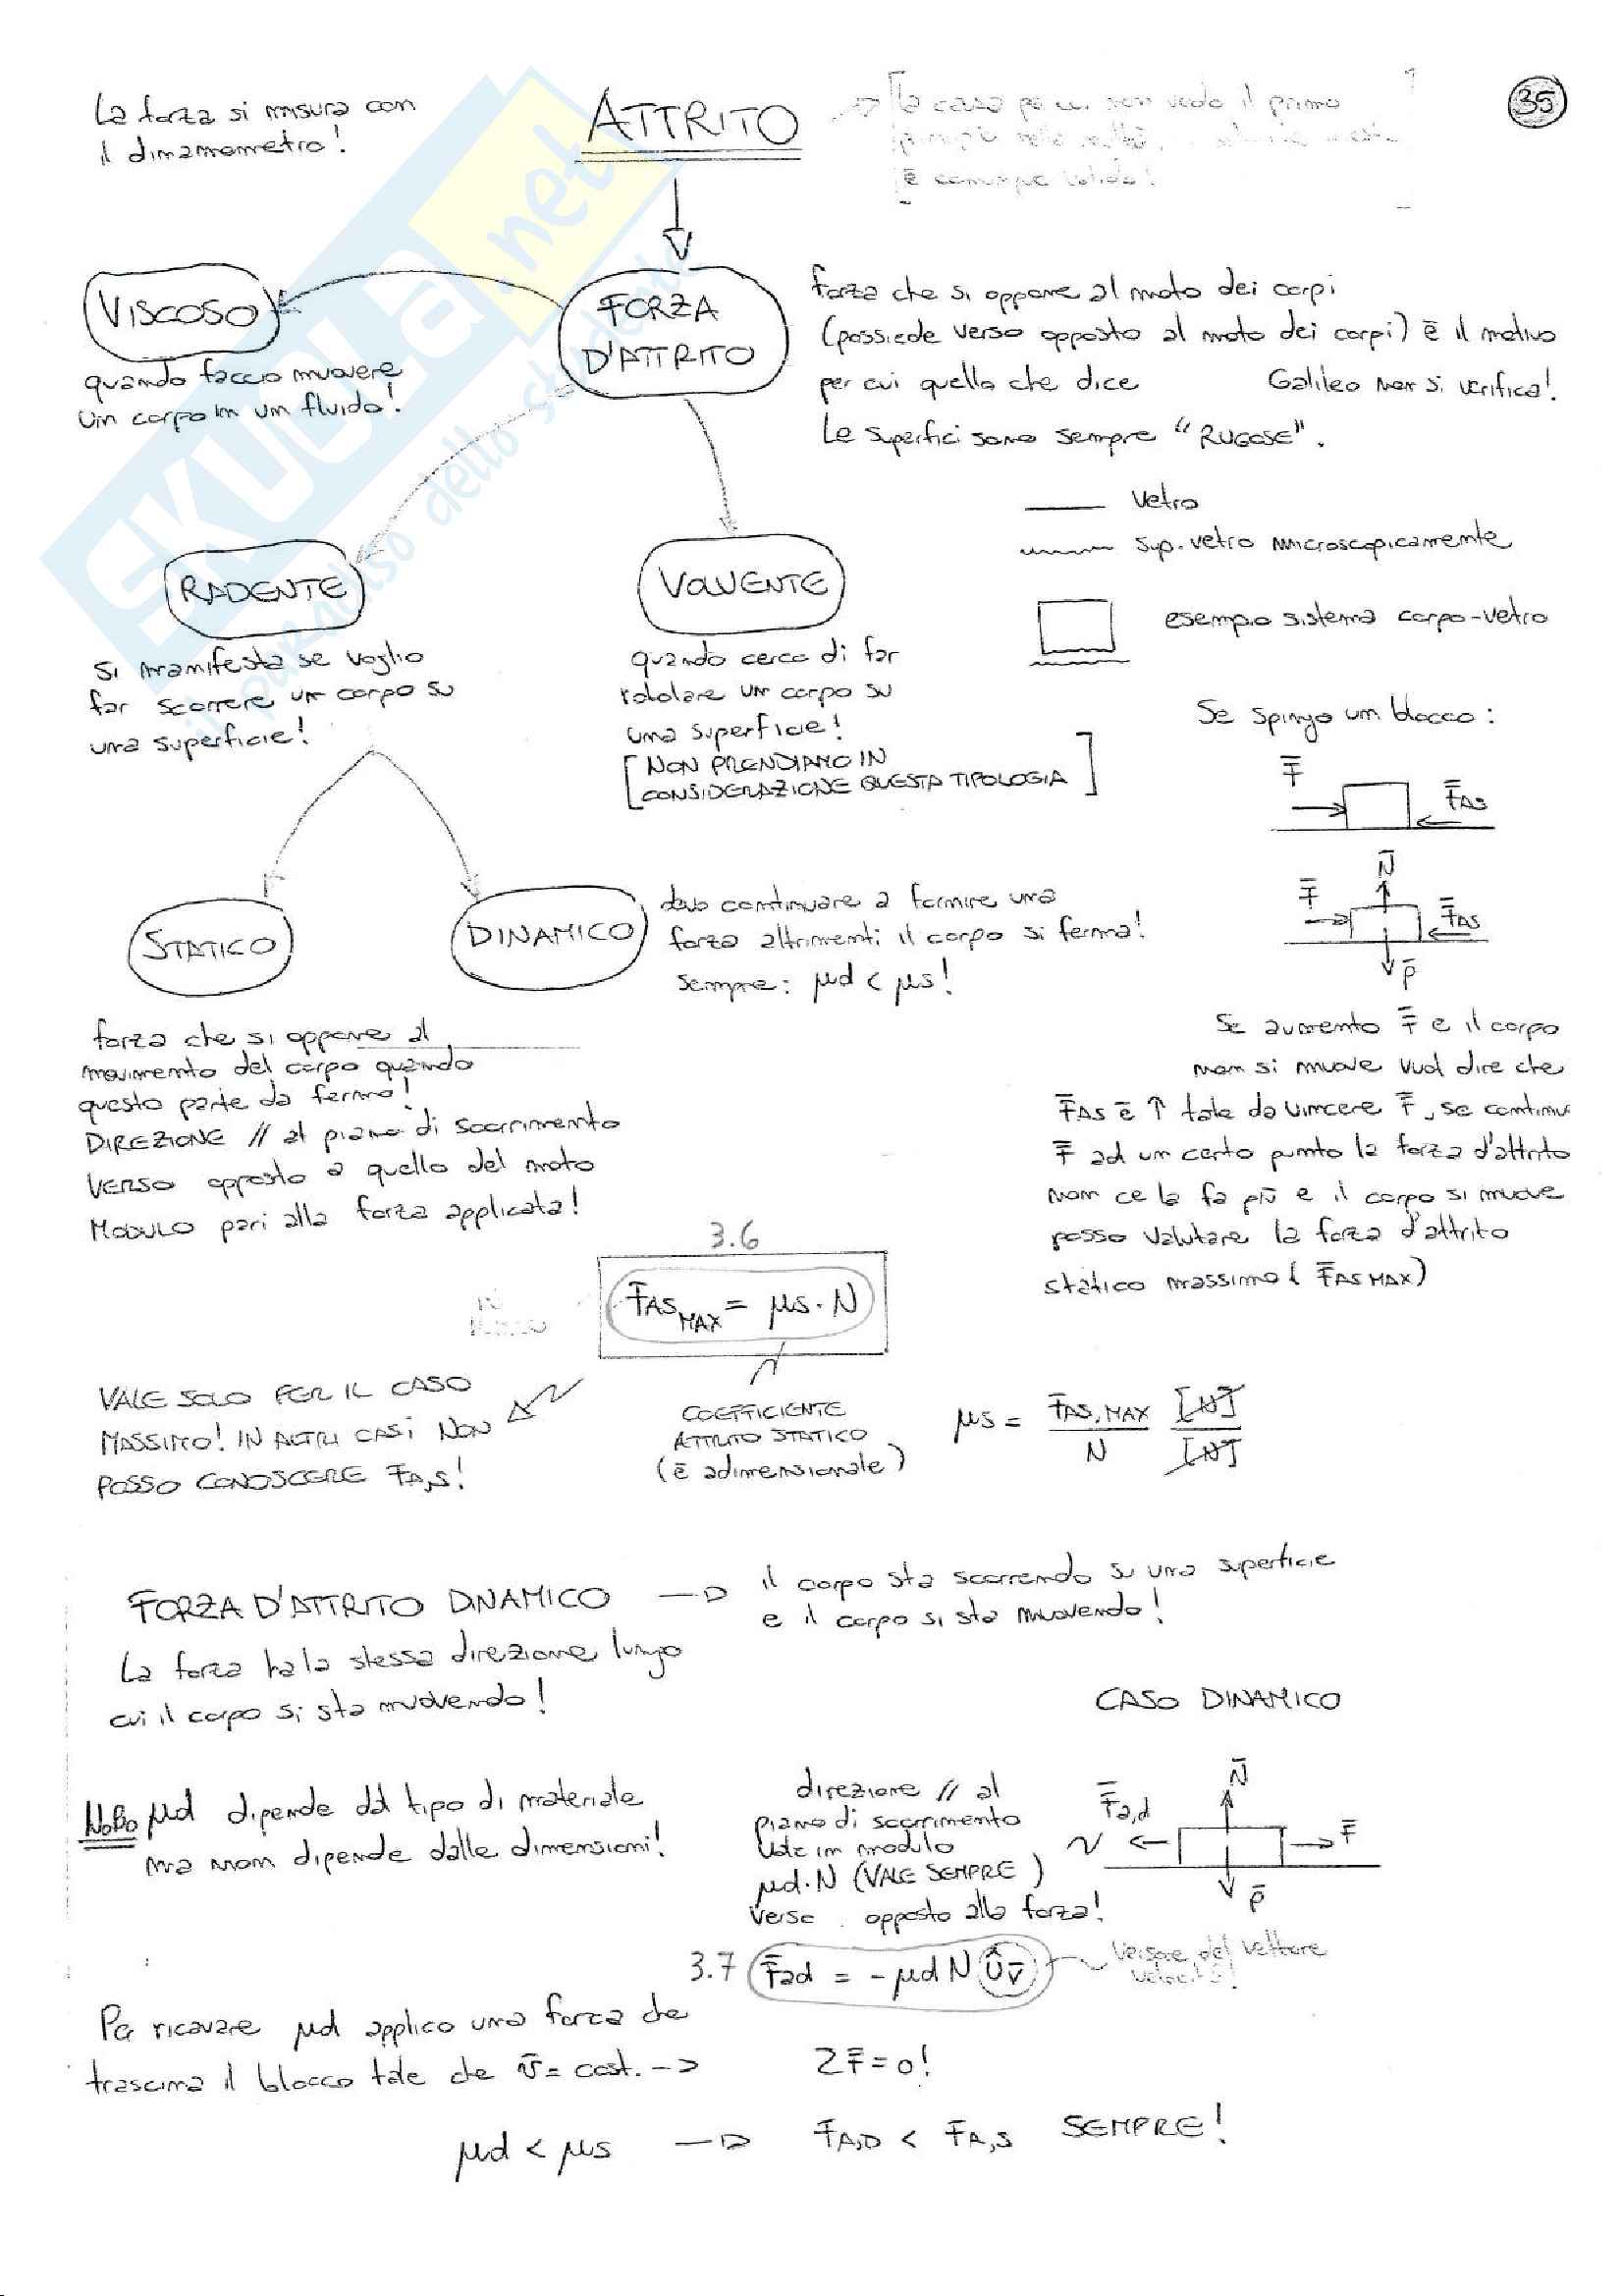 La forza si misura con
il dinamometro!
ATTRITO
la causa per cui non vedo il primo
è comunque valido!
35
SKUOLA.net
il paradiso dello studente
VISCOSO
quando faccio muovere
un corpo in un fluido!
FORZA
D'ATTRITO
forza che si oppone al moto dei corpi
(possiede verso opposto al moto dei corpi) è il motivo
per cui quello che dice Galileo non si verifica!
Le superfici sono sempre "RUGOSE".
Vetro
sup. vetro microscopicamente
esempio sistema corpo-vetro
RADENTE
si manifesta se voglio
far scorrere un corpo su
una superficie!
VOLVENTE
quando cerco di far
rotolare un corpo su
una superficie!
[NON PRENDIAMO IN
CONSIDERAZIONE QUESTA TIPOLOGIA]
Se spingo un blocco:
F̄
F̄AS
N̄
F̄
F̄AS
P̄
STATICO
DINAMICO
devo continuare a fornire una
forza altrimenti il corpo si ferma!
sempre: μd < μs!
forza che si oppone al
movimento del corpo quando
questo parte da fermo!
DIREZIONE // al piano di scorrimento
VERSO opposto a quello del moto
MODULO pari alla forza applicata!
Se aumento F̄ e il corpo
non si muove vuol dire che
F̄AS è ↑ tale da vincere F̄, se continuo
F̄ ad un certo punto la forza d'attrito
non ce la fa più e il corpo si muove
posso valutare la forza d'attrito
statico massimo (F̄AS MAX)
3.6
F̄AS MAX = μs · N
VALE SOLO PER IL CASO
MASSIMO! IN ALTRI CASI NON
POSSO CONOSCERE FA,S!
COEFFICIENTE
ATTRITO STATICO
(è adimensionale)
μs = F̄AS,MAX [N]
N [N]
FORZA D'ATTRITO DINAMICO → il corpo sta scorrendo su una superficie
e il corpo si sta muovendo!
La forza ha la stessa direzione lungo
cui il corpo si sta muovendo!
CASO DINAMICO
N.B. μd dipende dal tipo di materiale
ma non dipende dalle dimensioni!
direzione // al
piano di scorrimento
Vale in modulo
μd·N (VALE SEMPRE)
verso opposto alla forza!
N̄
F̄a,d
F̄
P̄
3.7 F̄ad = -μd N Ûv̄
versore del vettore
velocità!
Per ricavare μd applico una forza che
trascina il blocco tale che v̄ = cost. → ΣF̄ = 0!
μd < μs → F̄A,D < F̄A,S SEMPRE!